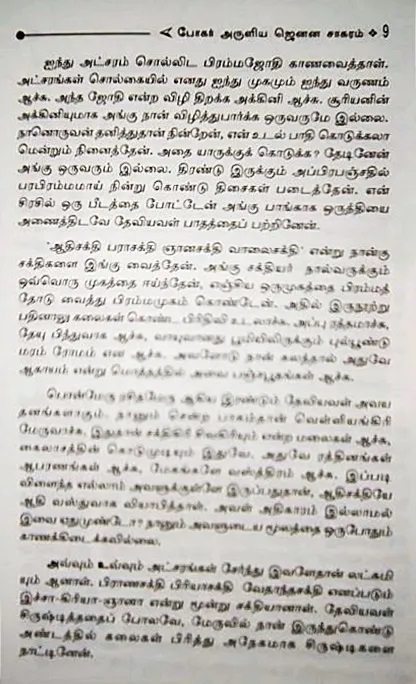 போகர் அருளிய ஜெனன சாகரம் ❖ 9
ஐந்து அட்சரம் சொல்லிட பிரம்மஜோதி காணவைத்தாள்.
அட்சரங்கள் சொல்கையில் எனது ஐந்து முகமும் ஐந்து வருணம்
ஆச்சு. அந்த ஜோதி என்ற விழி திறக்க அக்கினி ஆச்சு. சூரியனின்
அக்கினியுமாக அங்கு நான் விழித்துபார்க்க ஒருவருமே இல்லை.
நானொருவன் தனித்துதான் நின்றேன், என் உடல் பாதி கொடுக்கலா
மென்றும் நினைத்தேன். அதை யாருக்குக் கொடுக்க? தேடினேன்
அங்கு ஒருவரும் இல்லை. திரண்டு இருக்கும் அப்பிரபஞ்சதில்
பரபிரம்மமாய் நின்று கொண்டு திசைகள் படைத்தேன். என்
சிரசில் ஒரு பீடத்தை போட்டேன் அங்கு பாங்காக ஒருத்தியை
அணைத்திடவே தேவியவள் பாதத்தைப் பற்றினேன்.
'ஆதிசக்தி பராசக்தி ஞானசக்தி வாலைசக்தி' என்று நான்கு
சக்திகளை இங்கு வைத்தேன். அங்கு சக்தியர் நால்வருக்கும்
ஒவ்வொரு முகத்தை ஈய்ந்தேன், எஞ்சிய ஒருமுகத்தை பிரம்மத்
தோடு வைத்து பிரம்மமுகம் கொண்டேன். அதில் இருநூற்று
பதினாலு கலைகள் கொண்ட பிரிதிவி உடலாச்சு. அப்பு ரத்தமாச்சு,
தேயு பிந்துவாக ஆச்சு, வாயுவானது பூமியிலிருக்கும் புல்பூண்டு
மரம் ரோமம் என ஆச்சு. அவளோடு நான் கலந்தால் அதுவே
ஆகாயம் என்று மொத்தத்தில் அவை பஞ்சபூதங்கள் ஆச்சு.
பொன்மேரு ரசிதமேரு ஆகிய இரண்டும் தேவியவள் அவய
தனங்களாகும். நானும் சென்ற பாகம்தான் வெள்ளியங்கிரி
மேருவாச்சு. இதுதான் சக்திகிரி சிவகிரியும் என்ற மலைகள் ஆச்சு,
கைலாசத்தின் கொடுமுடியும் இதுவே. அதுவே ரத்தினங்கள்
ஆபரணங்கள் ஆச்சு, மேகங்களே வஸ்திரம் ஆச்சு. இப்படி
விளைந்த எல்லாம் அவளுக்குள்ளே இருப்பதுதான், ஆதிசக்தியே
ஆதி வஸ்துவாக வியாபித்தாள். அவள் அதிகாரம் இல்லாமல்
இவை ஏதுமுண்டோ? நானும் அவளுடைய மூலத்தை ஒருபோதும்
காணக்கிடைக்கவில்லை.
அவ்வும் உவ்வும் அட்சரங்கள் சேர்ந்து இவளேதான் லட்சுமி
யும் ஆனாள். பிராணசக்தி பிரியாசக்தி வேதாந்தசக்தி எனப்படும்
இச்சா-கிரியா-ஞானா என்று மூன்று சக்தியானாள். தேவியவள்
சிருஷ்டித்ததைப் போலவே, மேருவில் நான் இருந்துகொண்டு
அண்டத்தில் கலைகள் பிரித்து அநேகமாக சிருஷ்டிகளை
நாட்டினேன்.